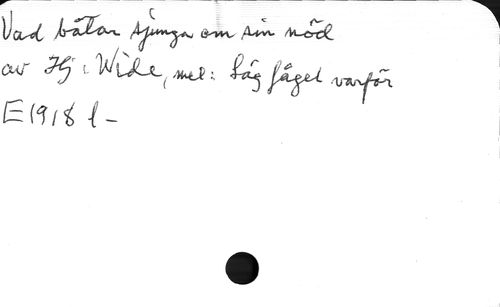 Vad båtar sjunga om sin nöd
av Hj. Wide, mel: Säg fågel varför
E 1918 l –